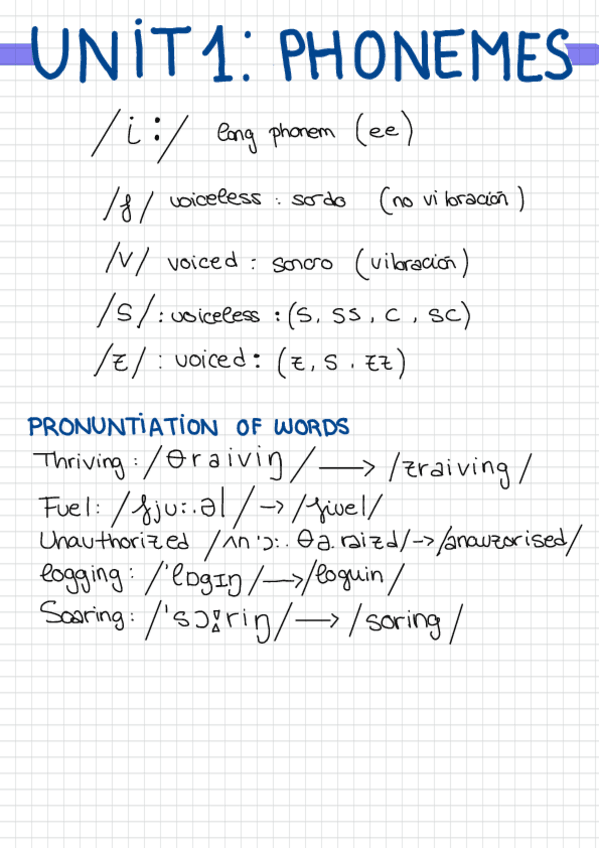 UNIT 1: PHONEMES
/i:/ long phonem (ee)
/f/ voiceless : sordo (no vibración)
/v/ voiced : sonoro (vibración)
/s/ : voiceless : (s, ss, c, sc)
/z/ : voiced : (z, s, zz)
PRONUNTIATION OF WORDS
Thriving : /θraiviŋ/ → /zraiving/
Fuel : /fju:.əl/ → /fiuel/
Unauthorized /ʌn'ɔ:.θə.raizd/ → /anauzorised/
logging : /'lɒgɪŋ/ → /loguin/
Soaring : /'sɔːriŋ/ → /soring/